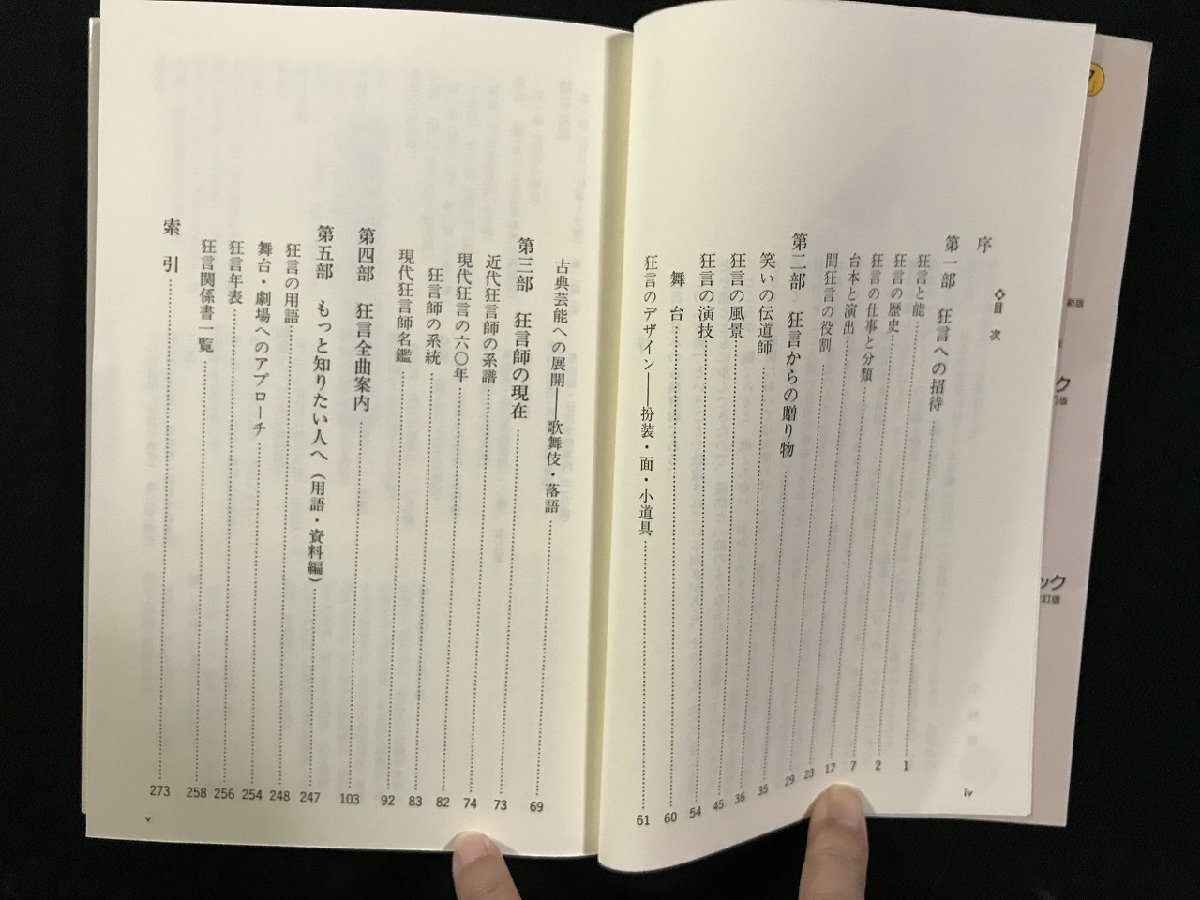 ◇目次
序
第一部 狂言への招待……1
狂言と能……2
狂言の歴史……7
狂言の仕事と分類……17
台本と演出……23
間狂言の役割……29
第二部 狂言からの贈り物……35
笑いの伝道師……36
狂言の風景……45
狂言の演技……54
舞台……60
狂言のデザイン――扮装・面・小道具……61
iv
古典芸能への展開――歌舞伎・落語……69
第三部 狂言師の現在……73
近代狂言師の系譜……74
現代狂言の六〇年……82
狂言師の系統……83
現代狂言師名鑑……92
第四部 狂言全曲案内……103
第五部 もっと知りたい人へ(用語・資料編)……247
狂言の用語……248
舞台・劇場へのアプローチ……254
狂言年表……256
狂言関係書一覧……258
索引……273
v
新版
ク
訂版
ック
訂版